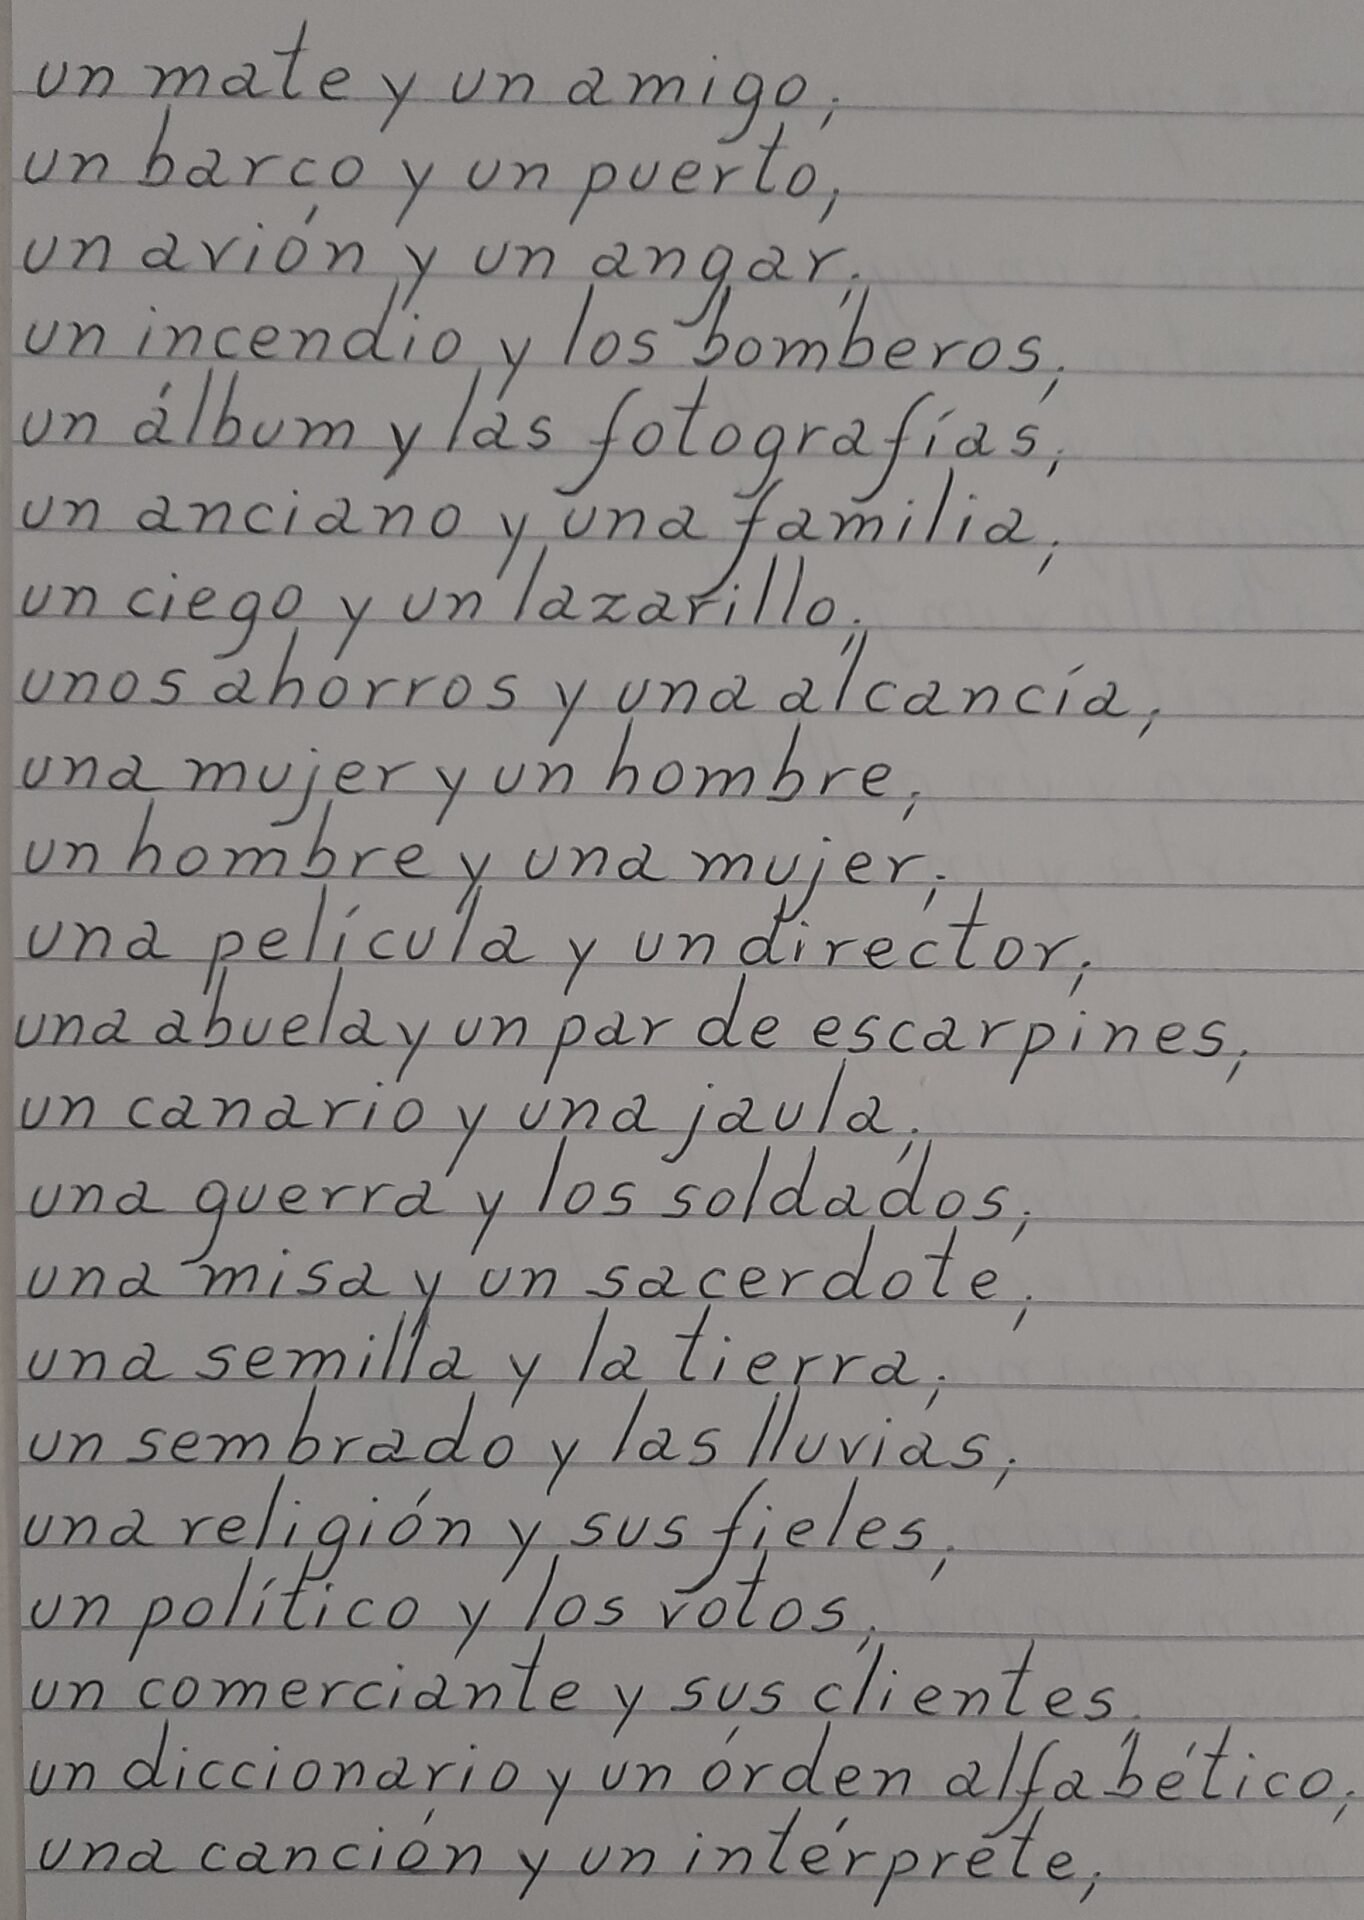 un mate y un amigo;
un barco y un puerto;
un avión y un angar;
un incendio y los bomberos;
un álbum y las fotografías;
un anciano y una familia;
un ciego y un lazarillo;
unos ahorros y una alcancía;
una mujer y un hombre;
un hombre y una mujer;
una película y un director;
una abuela y un par de escarpines;
un canario y una jaula;
una guerra y los soldados;
una misa y un sacerdote;
una semilla y la tierra;
un sembrado y las lluvias;
una religión y sus fieles;
un político y los votos;
un comerciante y sus clientes;
un diccionario y un órden alfabético;
una canción y un intérprete;